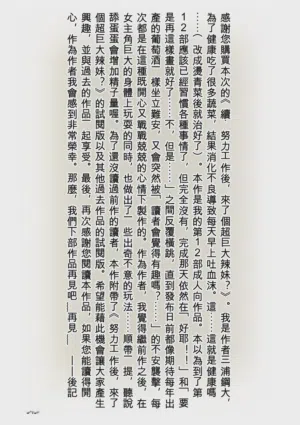 感謝您購買本次的《續　努力工作後，來了個超巨大辣妹？》。我是作者三浦鋼大，
為了健康吃了很多蔬菜，結果消化不良導致每天早上吐血沫，這……這就是健康嗎
……（改成燙青菜後就治好了）。本作是我的第12部成人向作品。本以為到了第
12部應該已經習慣各種事情了，但完全沒有，完成那天依然在「好耶！！」和「要
是再這樣畫就好了……不，但是……」之間反覆橫跳，直到發布日前都像期待每年出
產的葡萄酒一樣坐立難安，又會突然被「讀者會覺得有趣嗎？……」的不安襲擊，每
次都是在這種既開心又戰戰兢兢的心情下製作的。作為作者，我覺得繼前作之後，在
女主角巨大的身體上玩耍的同時，也做出了一些出奇不意的玩法……順帶一提，聽說
舔蛋蛋會增加精子量喔。為了還沒讀過前作的讀者，本作附帶了《努力工作後，來了
個超巨大辣妹？》的試閱版以及其他過去作品的試閱版。希望能藉此機會讓大家產生
興趣，並與過去的作品一起享受。最後，再次感謝您閱讀本作品，如果您能讀得開
心，作為作者我會感到非常榮幸。那麼，我們下部作品再見吧—再見—……後記